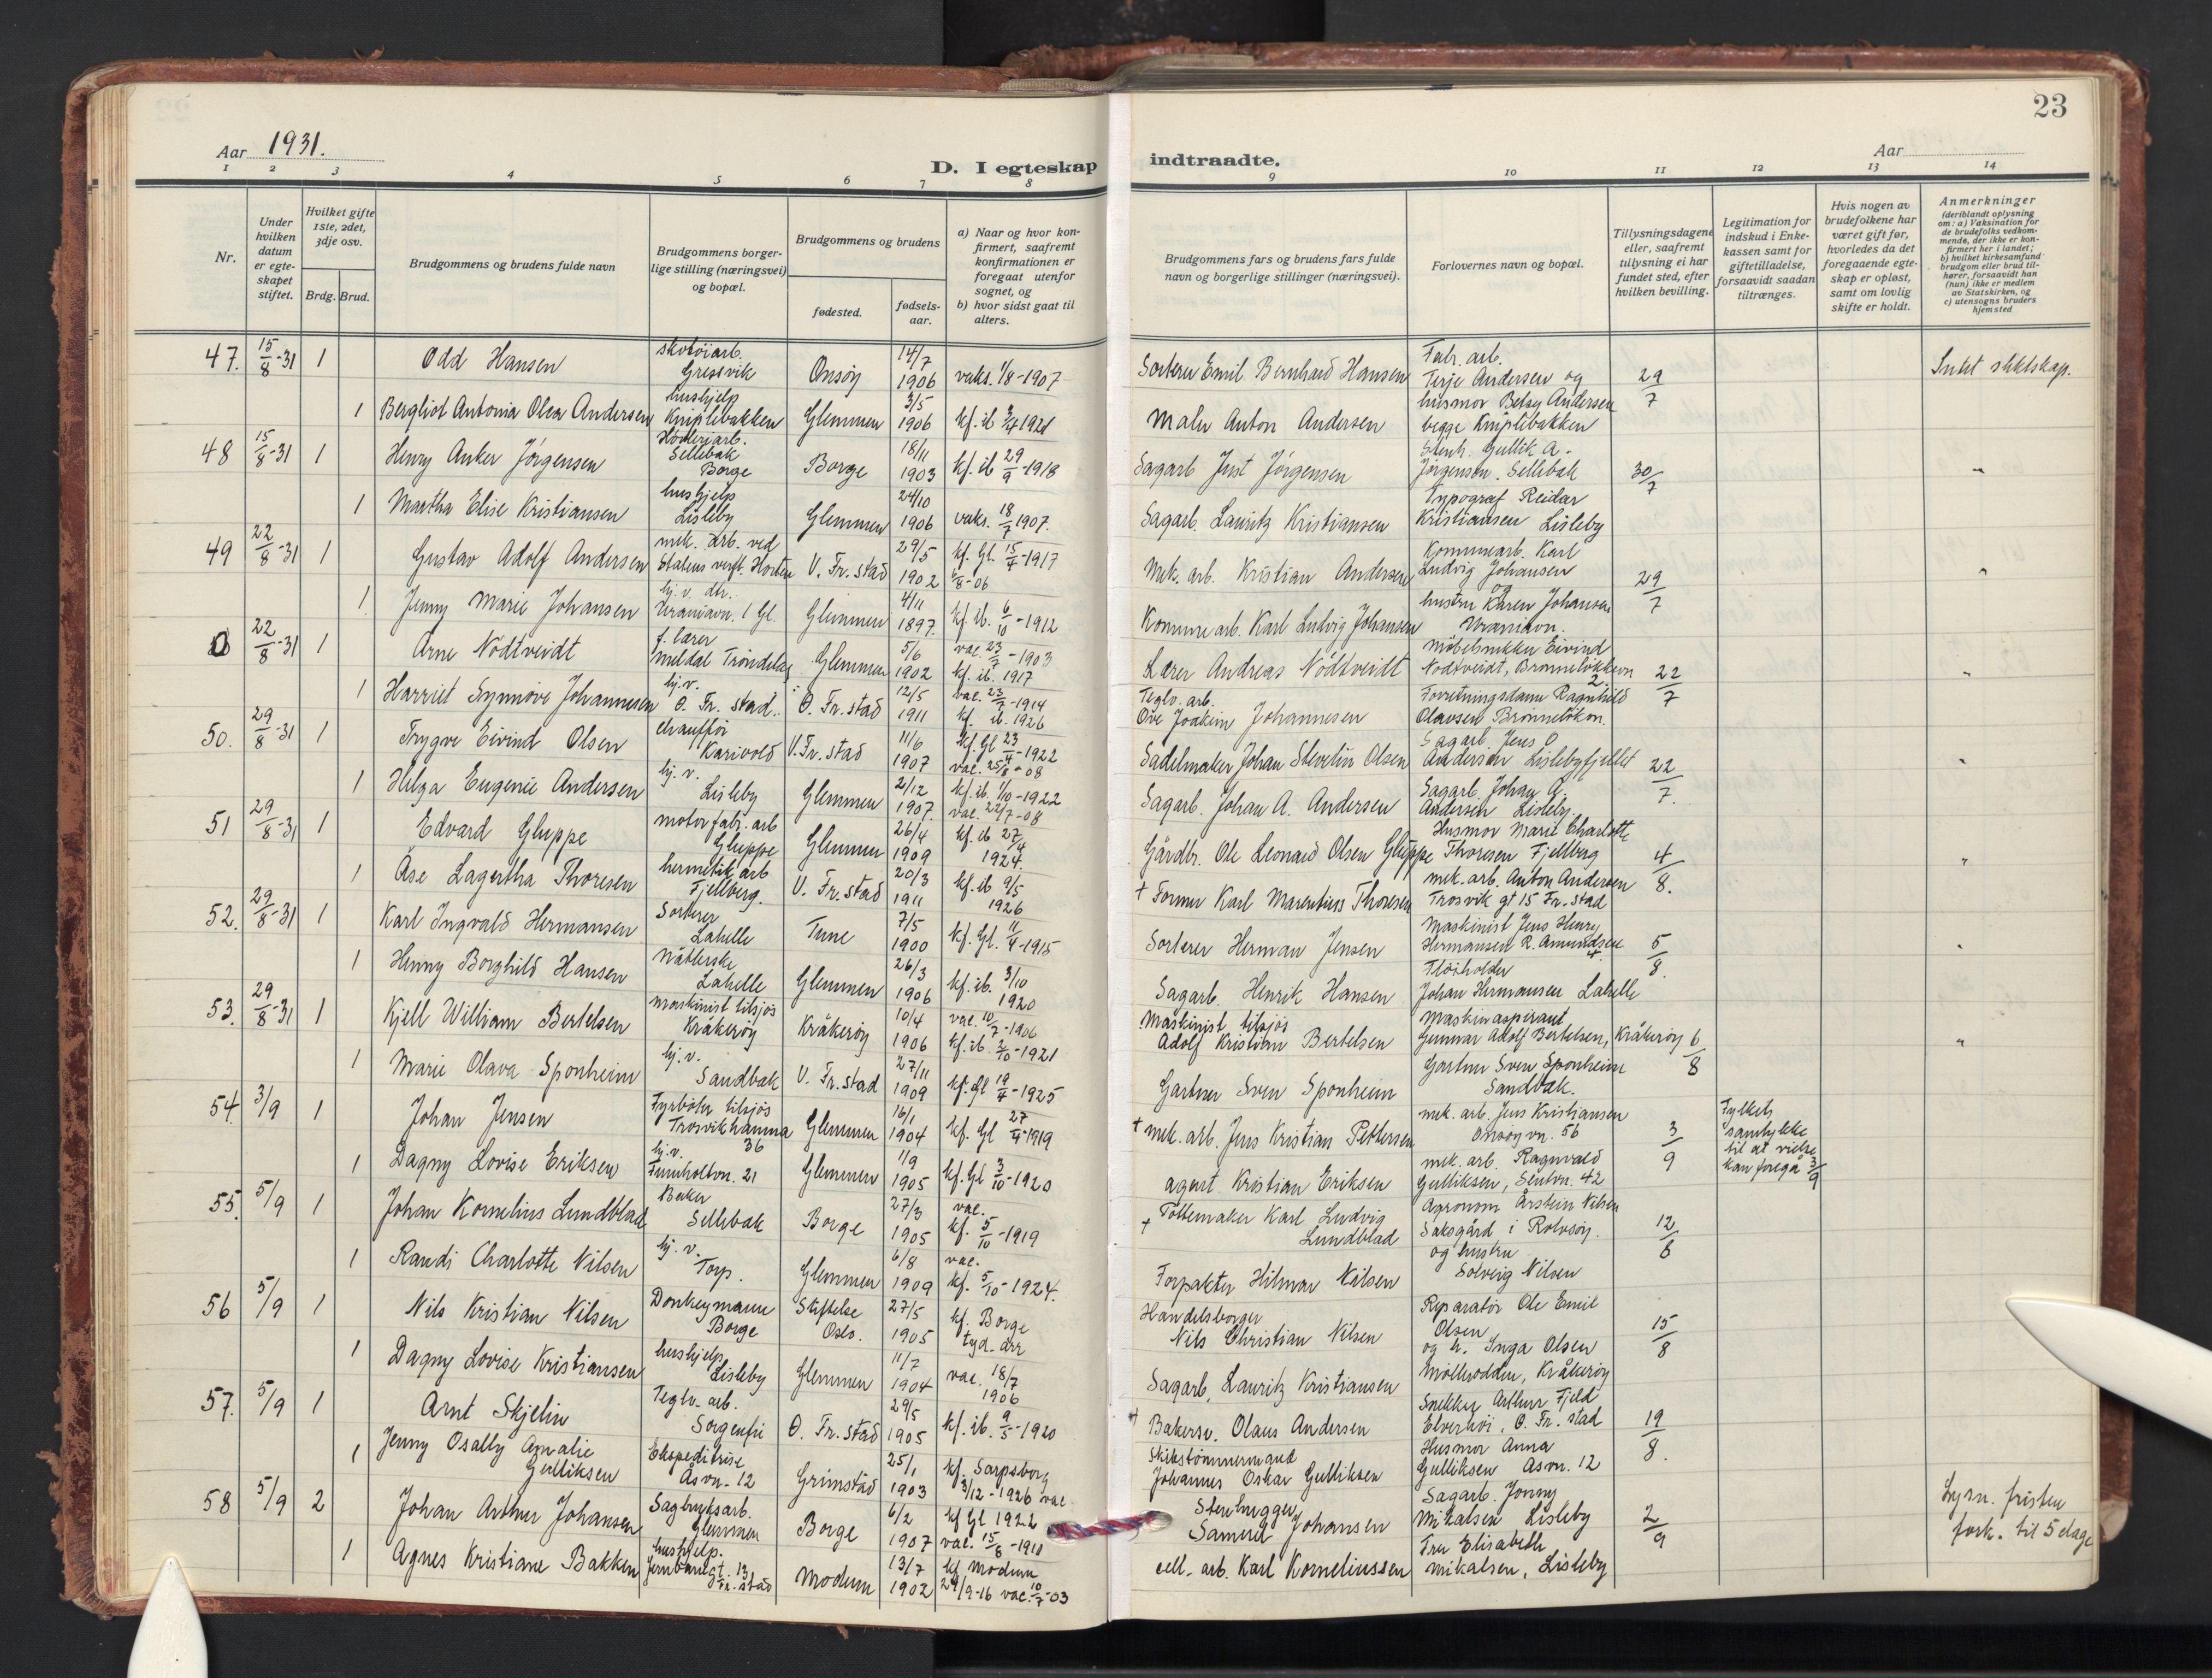 23
Aar 1931.
D. I egteskap indtraadte.
Aar
1 2 3 4 5 6 7 8 9 10 11 12 13 14
Nr.
Under hvilken datum er egteskapet stiftet.
Hvilket gifte 1ste, 2det, 3dje osv.
Brdg. Brud.
Brudgommens og brudens fulde navn
Brudgommens borgerlige stilling (næringsvei) og bopæl.
Brudgommens og brudens
fødested.
fødselsaar.
a) Naar og hvor konfirmert, saafremt konfirmationen er foregaat utenfor sognet, og
b) hvor sidst gaat til alters.
Brudgommens fars og brudens fars fulde navn og borgerlige stillinger (næringsvei).
Forlovernes navn og bopæl.
Tillysningsdagene eller, saafremt tillysning ei har fundet sted, efter hvilken bevilling.
Legitimation for indskud i Enkekassen samt for giftetilladelse, forsaavidt saadan tiltrænges.
Hvis nogen av brudefolkene har været gift før, hvorledes da det foregaaende egteskap er opløst, samt om lovlig skifte er holdt.
Anmerkninger
(deriblandt oplysning om: a) Vaksination for de brudefolks vedkommende, der ikke er konfirmert her i landet; b) hvilket kirkesamfund brudgom eller brud tilhører, forsaavidt han (hun) ikke er medlem av Statskirken, og c) utensogns bruders hjemsted
47. 15/8-31 1 Odd Hansen skotøiarb. Gressvik Onsøy 14/7 1906 vaks. 1/8-1907 Sorterer Emil Bernhard Hansen Fabr. arb. Terje Andersen og 29/7 Intet slektskap.
1 Bergliot Antonia Olea Andersen hushjelp Kniplebakken Glemmen 3/5 1906 kf. ib 3/4 1921 Maler Anton Andersen husmor Betsy Andersen begge Kniplebakken
48 15/8-31 1 Henry Anker Jörgensen Sellebak Borge Borge 18/11 1903 kf. ib 29/9-1918 Sagarb Just Jörgensen Stenh. Gullik A. Jörgensen. Sellebak 30/7 "
1 Martha Elise Kristiansen hushjelp Lisleby Glemmen 24/10 1906 vaks. 18/7 1907. Sagarb. Lauritz Kristiansen Typograf Reidar Kristiansen Lisleby
49 22/8-31 1 Gustav Adolf Andersen mek. arb. ved Statens verft. Horten V. Fr. stad 29/5 1902 kf. Gl. 15/4-1917 Mek. arb. Kristian Andersen Kommunearb. Karl Ludvig Johansen og 29/7 "
1 Jenny Marie Johansen hj. v. dtr. Uraniavn. 1 Gl. Glemmen 4/11 1897. kf. ib. 6/10-1912 Kommunearb. Karl Ludvig Johansen hustru Karen Johansen Uraniavn.
22/8-31 1 Arne Nödtveidt f. lærer Meldal Tröndelag Glemmen 5/6 1902 vac. 23/7-1903 kf. ib. 1917 Lærer Andreas Nödtveidt Möbelsnekker Eivind Nödtveidt, Brönnelökkevn 2. 22/7 "
1 Harriet Synnöve Johannesen hj. v. Ö. Fr. stad. Ö. Fr. stad 12/5 1911 vac. 23/7-1914 kf. ib. 1926 Teglv. arb. Ove Joakim Johannesen Forretningsdame Ragnhild Olausen Brönnelökvn.
50. 29/8-31 1 Trygve Eivind Olsen chauffør Karivold V. Fr. stad 11/6 1907 kf. Gl 23/4-1922 vac. 25/8-08 Sadelmaker Johan Stevelin Olsen Sagarb. Jens O Andersen Lislebyfjellet 22/7. "
1 Helga Eugenie Andersen hj. v. Lisleby Glemmen 21/12 1907. kf. ib. 1/10-1922 vac. 22/7-08 Sagarb. Johan A. Andersen Sagarb. Johan A. Andersen Lisleby
51 29/8-31 1 Edvard Gluppe motorfabr. arb Gluppe Glemmen 26/4 1909 kf. ib 27/4 1924. Gårdbr. Ole Leonard Olsen Gluppe Husmor Marie Charlotte Thoresen Fjellberg 4/8. "
1 Åse Lagertha Thoresen hermetik. arb Fjellberg. V. Fr. stad 20/3 1911 kf. ib 9/5 1926 + Former Karl Marentius Thoresen mek. arb. Anton Andersen Trosvik gt 15 Fr. stad
52. 29/8-31 1 Karl Ingvald Hermansen Sorterer Lahelle Tune 7/5 1900 kf. Gl. 11/4-1915 Sorterer Herman Jensen Maskinist Jens Henry Hermansen R. Amundsen 5/8. "
1 Henny Borghild Hansen Nåtlerske Lahelle Glemmen 26/3 1906 kf. ib. 3/10 1920 Sagarb. Henrik Hansen Johan Hermansen Lahelle
53. 29/8-31 1 Kjell William Bertelsen maskinist tilsjös Kråkeröy Kråkeröy 10/4 1906 vac. 10/7-1906 kf. ib. 2/10-1921 Maskinist tilsjös Adolf Kristian Bertelsen Maskinaspirant Gunnar Adolf Bertelsen, Kråkeröy 6/8 "
1 Marie Olava Sponheim hj. v. Sandbæk V. Fr. stad 27/11 1909 kf. Gl 19/4-1925 Gartner Sven Sponheim Gartner Sven Sponheim Sandbæk.
54. 3/9 1 Johan Jensen Fyrböter tilsjös Trosvikhamna 36 Glemmen 16/1 1904 kf. Gl 27/4-1919 + mek. arb. Jens Kristian Pettersen mek. arb. Jens Kristiansen Onsöyvn. 56 3/9 Fylkets samtykke til at vielse kan foregå 3/9
1 Dagny Lovise Eriksen hj. v. Tunholtvn. 21 Glemmen 1/9 1905 kf. Gl 3/10-1920 agent Kristian Eriksen mek. arb. Ragnvald Gulliksen, 42
55. 5/9 1 Johan Kornelius Lundblad Baker Sellebak Borge 27/3 1905 vac. kf. 5/10-1919 + Pottemaker Karl Ludvig Lundblad Agronom Årstein Nilsen Saksgård i Rolvsöy. 12/6
1 Randi Charlotte Nilsen hj. v. Torp. Glemmen 6/8 1909 vac. kf. 5/10-1924. Forpakter Hilmar Nilsen og hustru Solveig Nilsen
56 5/9 1 Nils Kristian Nilsen Donkeymann Borge Stiftelse Oslo. 27/5 1905 kf. Borge Handelsborger Nils Christian Nilsen Reparatör Ole Emil Olsen 15/8
1 Dagny Lovise Kristiansen hushjelp Lisleby Glemmen 11/7 1904 vac. 18/7 1906 Sagarb. Lauritz Kristiansen og h. Inga Olsen Mölleodden, Kråkeröy
57. 5/9 1 Arnt Skjelin Teglv. arb. Sorgenfri Ö. Fr. stad 29/5 1905 kf. ib. 9/5-1920 + Bakersv. Olaus Andersen Snekker Arthur Fjeld Elverhöi, Ö. Fr. stad 19/8.
1 Jenny Osally Amalie Gulliksen Ekspeditrise Åsvn. 12 Grimstad 25/1 1903 kf. Sarpsborg 3/12-1926 vac Skibstömmermand Johannes Oskar Gulliksen Husmor Anna Gulliksen Åsvn. 12
58 5/9 2 Johan Arthur Johansen Sagbruksarb. Glemmen Borge 6/2 1907 kf Gl 1922 vac. 15/8-1911 Stenhugger Samuel Johansen Sagarb. Jonny Mikalsen Lisleby 2/9 Lysn. fristen fork. til 5 dage
1 Agnes Kristiane Bakken hushjelp. Jernbanegt. 13 Fr. stad Modum 13/7 1902 kf. Modum 24/9-16 vac. 10/7-03 cell. arb. Karl Korneliussen Fru Elisabeth Mikalsen, Lisleby